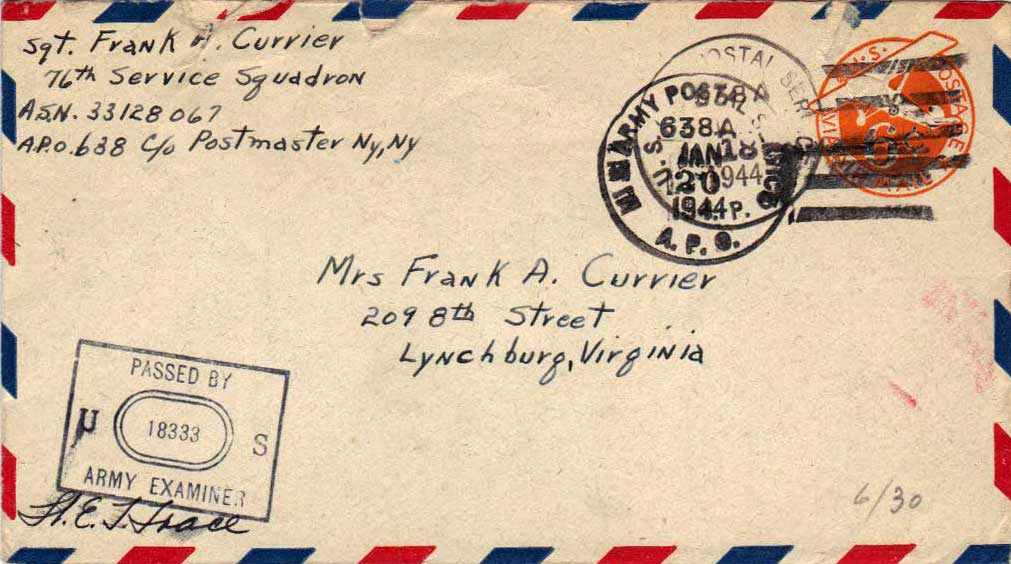 Sgt. Frank A. Currier
76th Service Squadron
A.S.N. 33128067
A.P.O. 638 C/o Postmaster Ny, Ny
ARMY POSTAL
638A
JAN 18
20 1944
1944 P.
A. P. O.
U.S. POSTAGE
6¢
AIR MAIL
Mrs Frank A. Currier
209 8th Street
Lynchburg, Virginia
PASSED BY
U 18333 S
ARMY EXAMINER
6/30